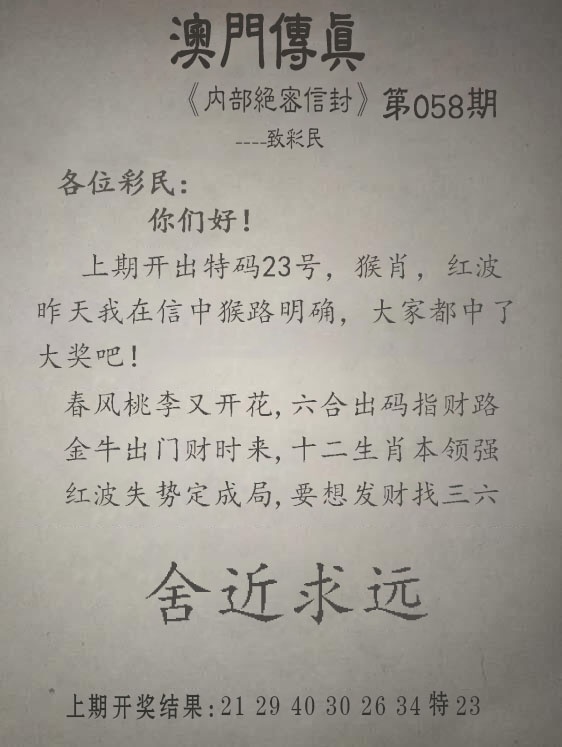 澳門傳真
《内部絕密信封》第058期
----致彩民
各位彩民：
你们好！
上期开出特码23号，猴肖，红波
昨天我在信中猴路明确，大家都中了
大奖吧！
春风桃李又开花,六合出码指财路
金牛出门财时来,十二生肖本领强
红波失势定成局,要想发财找三六
舍近求远
上期开奖结果:21 29 40 30 26 34 特 23